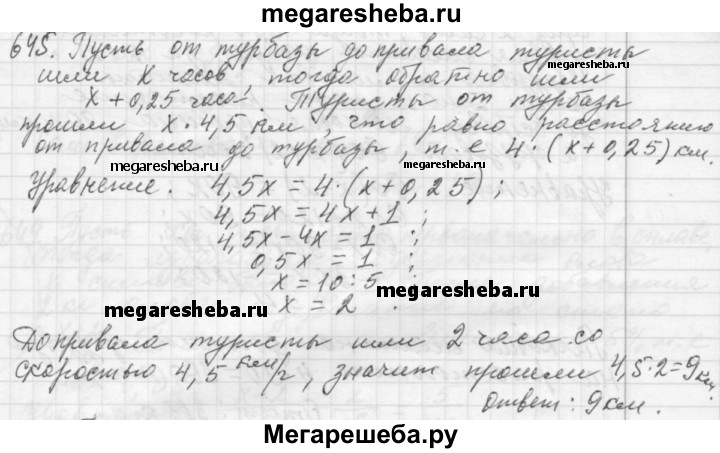 megaresheba.ru
645. Пусть от турбазы до привала туристы
шли x часов, тогда обратно шли
megaresheba.ru
x + 0,25 часа. Туристы от турбазы
прошли x · 4,5 км, что равно расстоянию
от привала до турбазы, т.е 4 · (x + 0,25) км.
megaresheba.ru
megaresheba.ru
Уравнение. 4,5x = 4 · (x + 0,25) ;
4,5x = 4x + 1 ;
4,5x - 4x = 1 ;
0,5x = 1 ;
x = 10 : 5 ;
x = 2 .
megaresheba.ru
megaresheba.ru
До привала туристы шли 2 часа со
скоростью 4,5 км/г, значит прошли 4,5 · 2 = 9 км.
Ответ: 9 км.
megaresheba.ru
Мегарешеба.ру